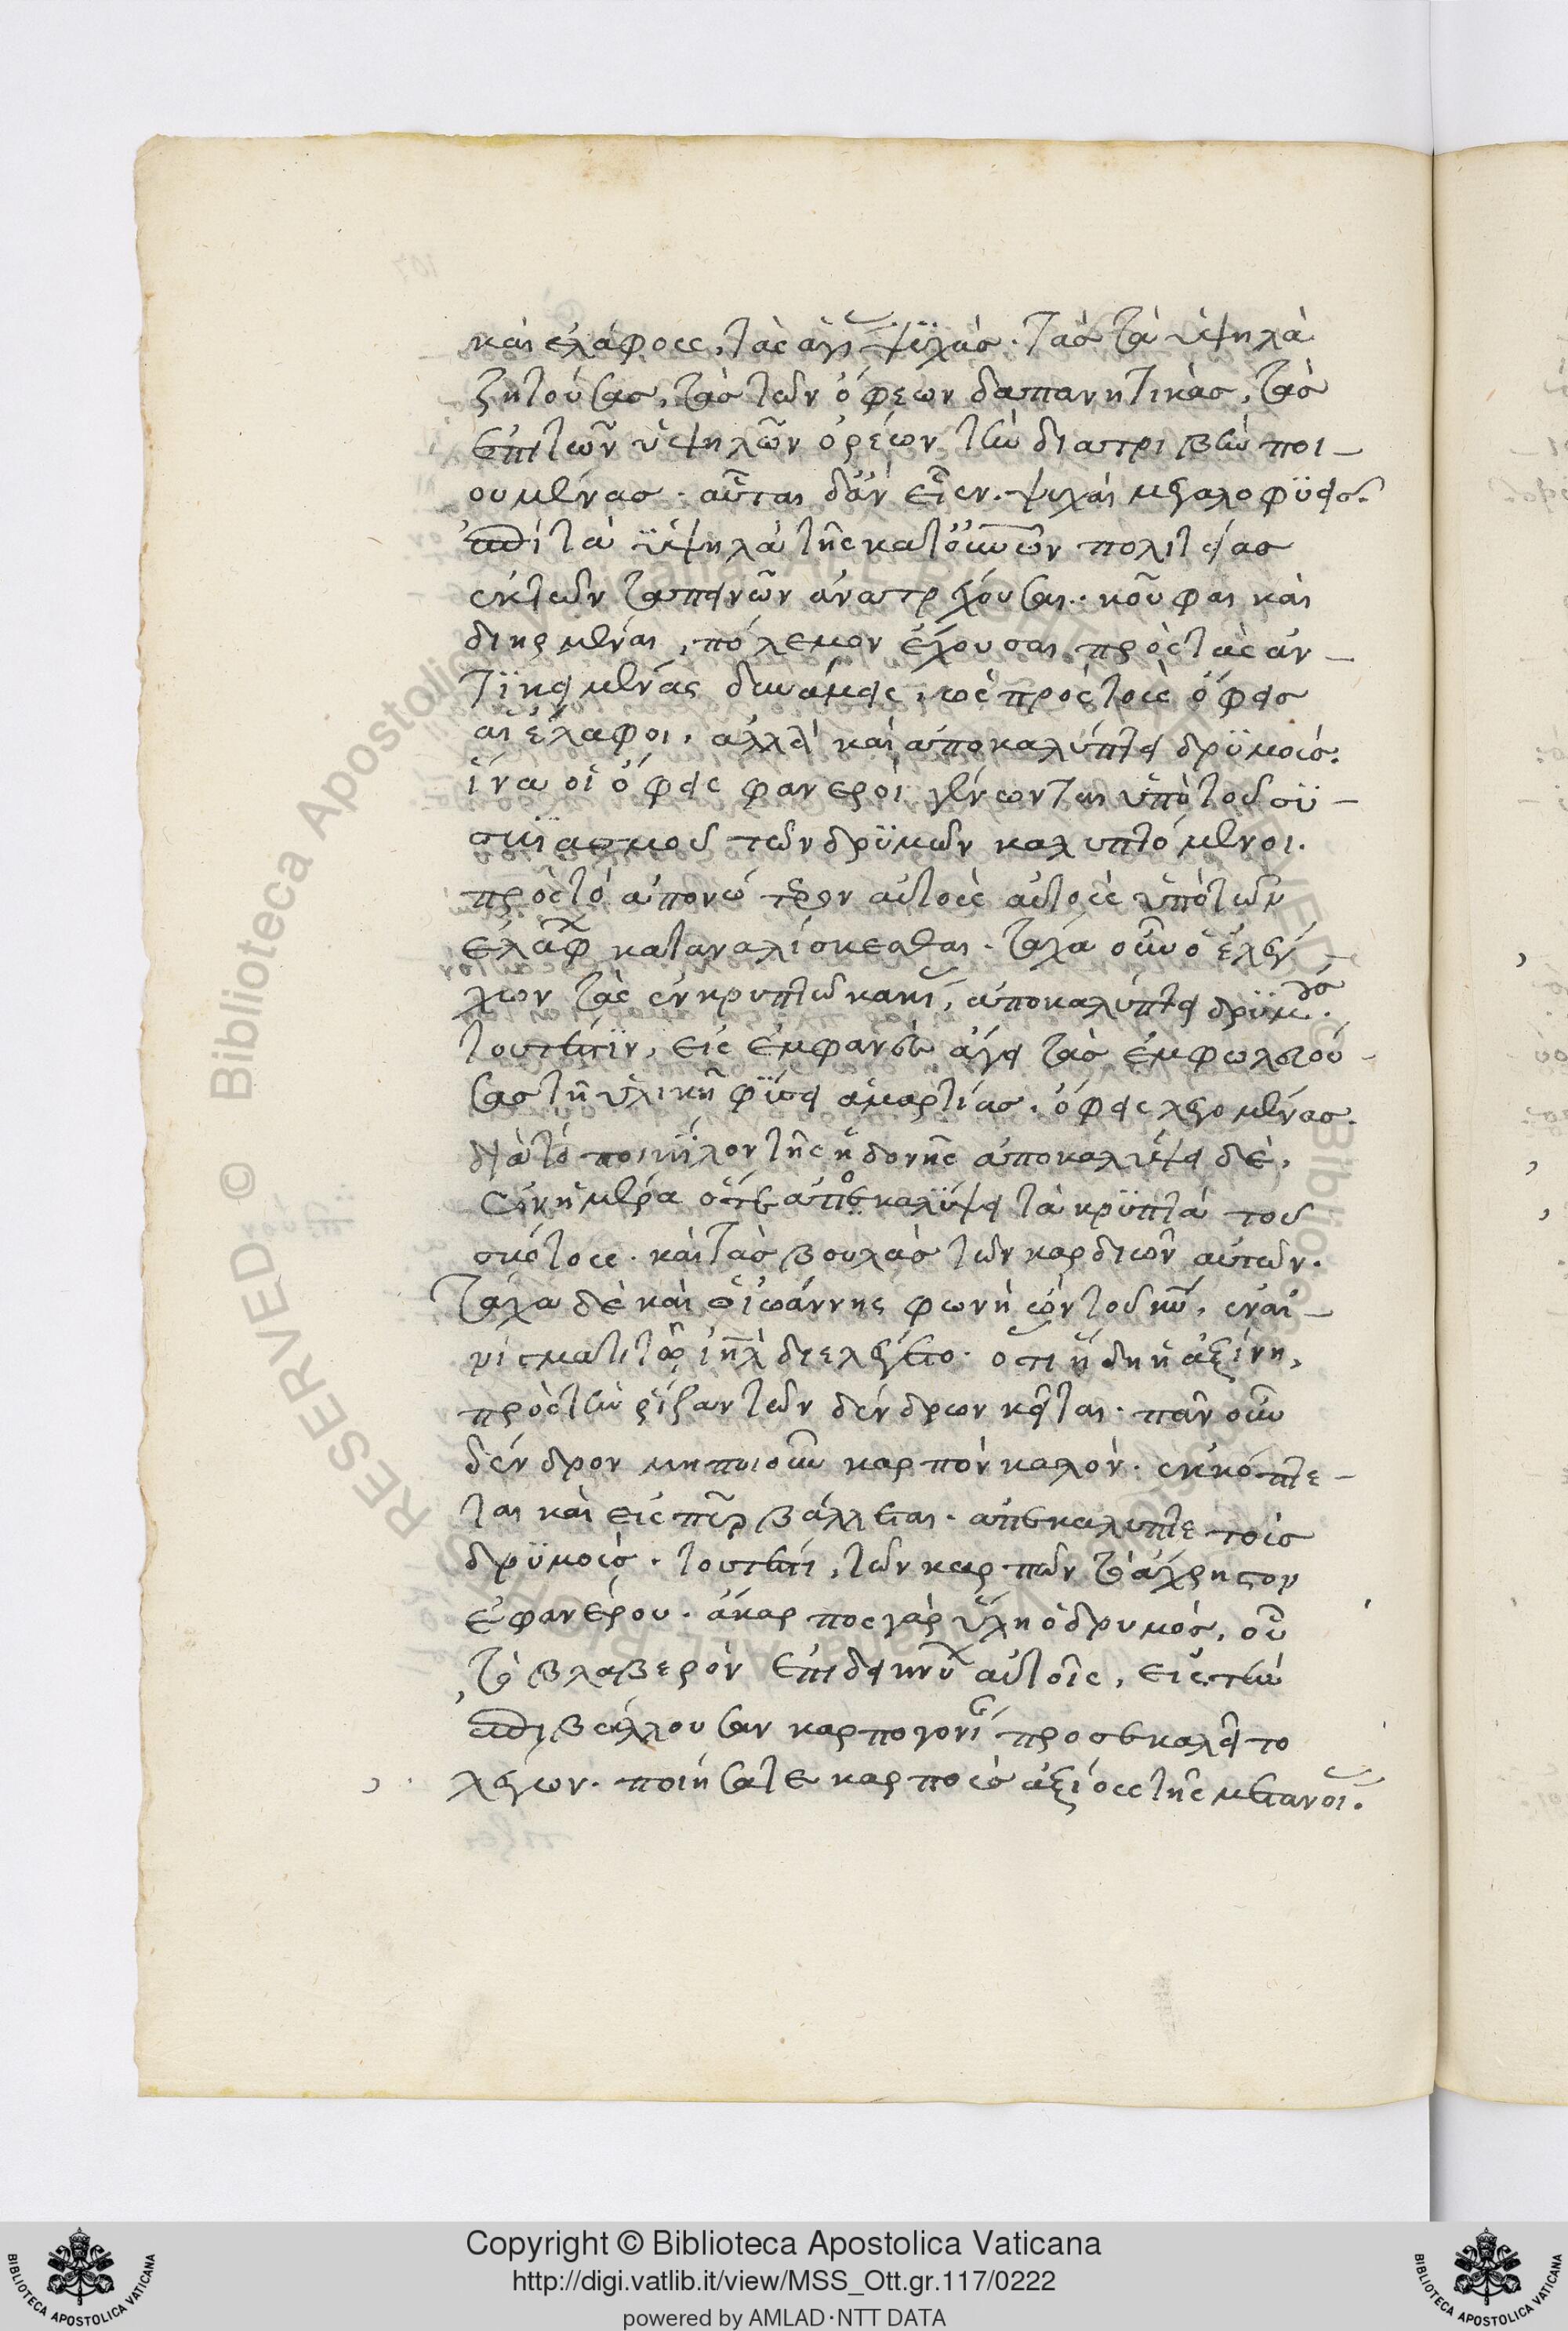 καὶ ἐλάφους, τὰς ἁγί ψυχάς. τὰς τὰ ὑψηλὰ
ζητούσας, τὰς τῶν ὄφεων δαπανητικὰς, τὰς
ἐπὶ τῶν ὑψηλῶν ὀρέων τὴν διατριβὴν ποι-
ουμένας. αὗται δ' ἂν εἶεν. ψυχαὶ μεγαλοφυεῖς.
ἐπὶ τὰ ὑψηλὰ τῆς κατ' οὐνῶν πολιτείας
ἐκ τῶν ταπεινῶν ἀνατρέχουσαι. κοῦφαι καὶ
διηρμέναι, πόλεμον ἔχουσαι πρὸς τὰς ἀν-
τικειμένας δυνάμεις, ὡς πρὸς τοὺς ὄφεις
αἱ ἔλαφοι. ἀλλὰ καὶ ἀποκαλύπτει δρυμούς.
ἵνα οἱ ὄφεις φανεροὶ γένωνται ὑπὸ τοῦ συ-
σκιασμοῦ τῶν δρυμῶν καλυπτόμενοι.
πρὸς τὸ ἀπονώτερον αὐτοὺς αὐτοὺς ὑπὸ τῶν
ἐλάφ καταναλίσκεσθαι. τάχα οὖν ὁ ἐλέγ-
χων τὰς ἐν κρυπτῷ κακί, ἀποκαλύπτει δρυμούς.
τουτέστιν, εἰς ἐμφανὲς ἄγει τὰς ἐμφωλευού-
σας τῇ ὑλικῇ φύσει ἁμαρτίας. ὄφεις λεγομένας.
διὰ τὸ ποικίλον τῆς ἡδονῆς ἀποκαλύψει δὲ,
ἐν ἡμέρα ὅτε ἀποκαλύψει τὰ κρυπτὰ τοῦ
σκότους. καὶ τὰς βουλὰς τῶν καρδιῶν αὐτῶν.
Τάχα δὲ καὶ ὁ ἰωάννης φωνὴ ὢν τοῦ κυ, ἐν αἰ-
νίγματι τῷ ιηλ διελέγετο. ὅτι ἤδη ἡ ἀξίνη,
πρὸς τὴν ῥίζαν τῶν δένδρων κεῖται. πᾶν οὖν
δένδρον μὴ ποιοῦν καρπὸν καλὸν. ἐκκόπτε-
ται καὶ εἰς πῦρ βάλλεται. ἀπεκάλυπτε τοὺς
δρυμούς. τουτέστι, τῶν καρπῶν τὸ ἄχρηστον
ἐφανέρου. ἄκαρπος γὰρ ὕλη ὁ δρυμός, οὗ
τὸ βλαβερὸν ἐπιδεικνὺς αὐτοῖς, εἰς τὴν
ἐπιβάλλουσαν καρπογονί προσεκαλεῖτο
λέγων. ποιήσατε καρποὺς ἀξίους τῆς μετανοί.
Copyright © Biblioteca Apostolica Vaticana
http://digi.vatlib.it/view/MSS_Ott.gr.117/0222
powered by AMLAD·NTT DATA